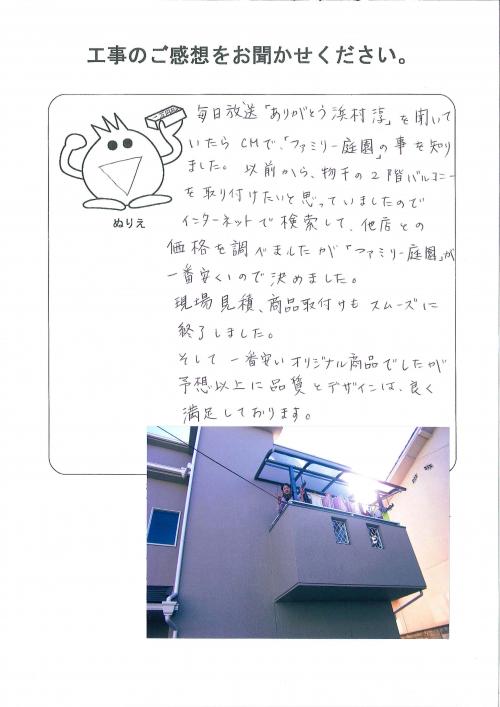 工事のご感想をお聞かせください。
毎日放送「ありがとう浜村淳」を聞いて
いたらCMで、「ファミリー庭園」の事を知り
ました。以前から、物干の2階バルコニー
を取り付けたいと思っていましたので
インターネットで検索して、他店との
価格を調べましたが「ファミリー庭園」が
一番安くいので決めました。
現場見積、商品取付けもスムーズに
終了しました。
そして一番安いオリジナル商品でしたが
予想以上に品質とデザインは、良く
満足しております。
ぬりえ